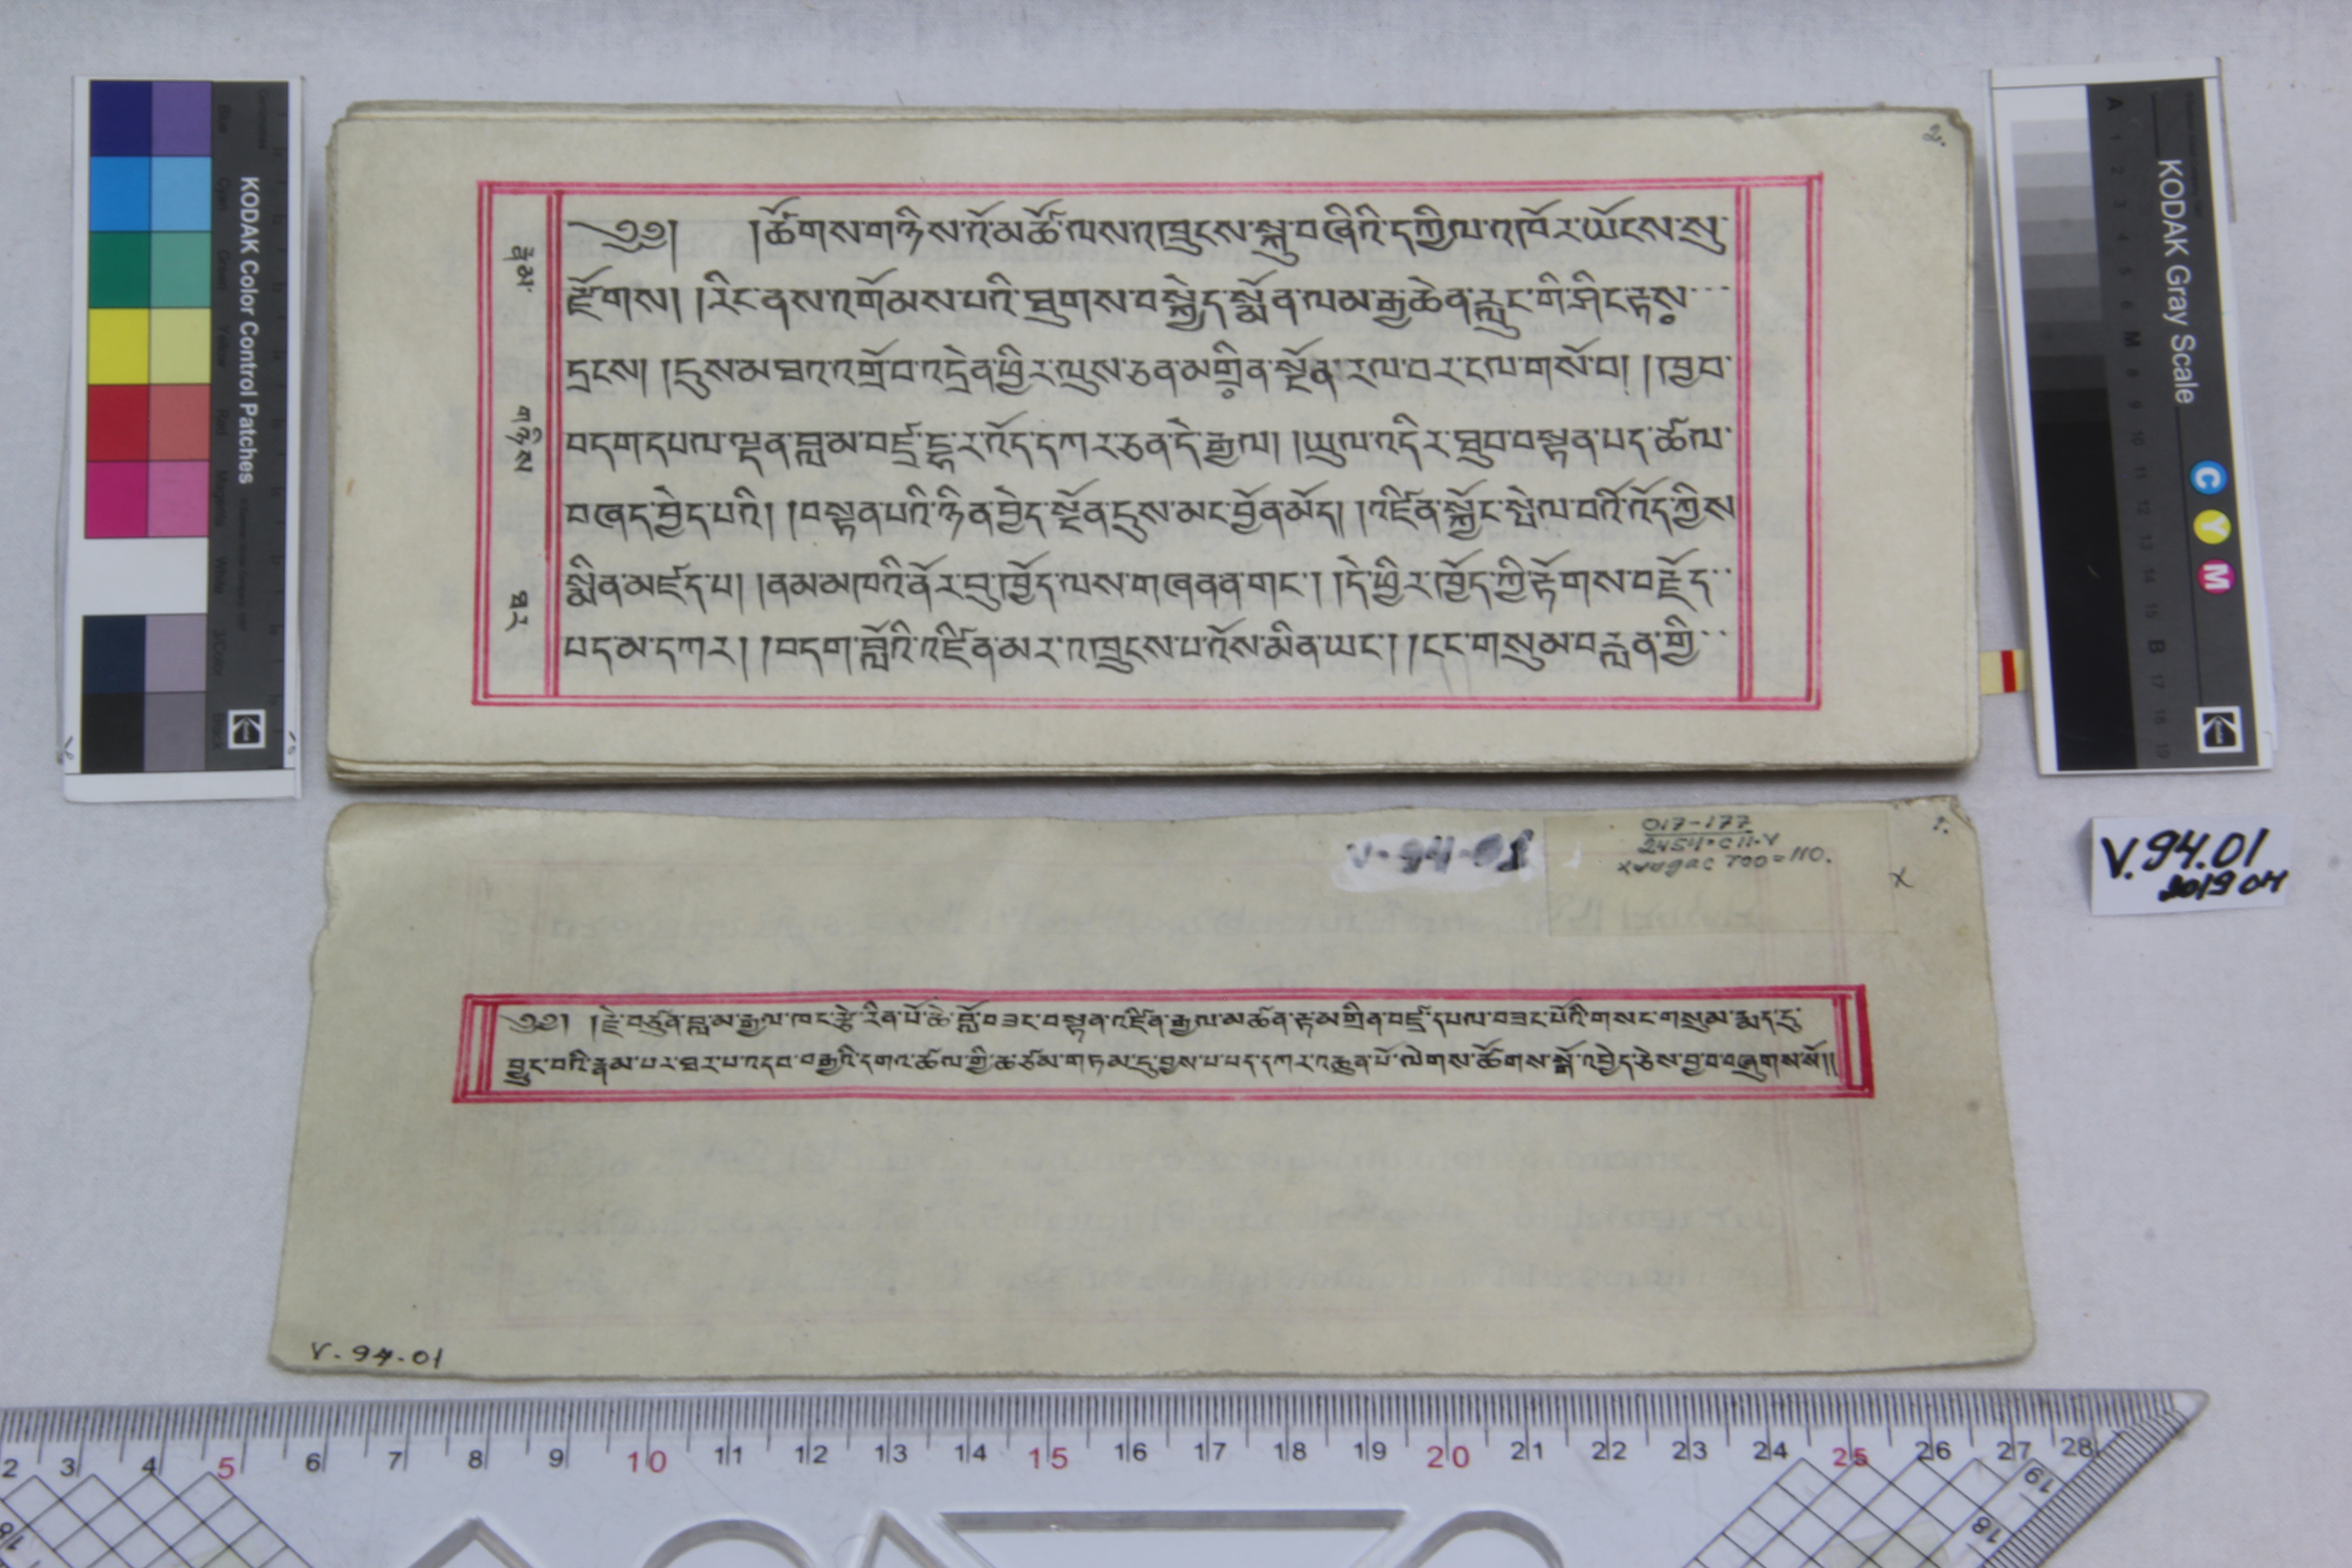 ༄༅། །ཚོགས་གཉིས་འོ་མཚོ་ལས་འཁྲུངས་སྐུ་བཞིའི་དཀྱིལ་འཁོར་ཡོངས་སུ་
རྫོགས། །རིང་ནས་འགོམས་པའི་ཐུགས་བསྐྱེད་སྨོན་ལམ་རྒྱ་ཆེན་རླུང་གི་ཤིང་རྟས་
དྲངས། །དུས་མཐའ་འགྲོ་བ་འདྲེན་ཕྱིར་ལུས་ཅན་མགྲིན་སྔོན་རལ་བར་ངལ་གསོ་བ། །ཁྱབ་
བདག་དཔལ་ལྡན་བླ་མ་བཛྲ་དྷ་ར་འོད་དཀར་ཅན་དེ་རྒྱལ། །ཡུལ་འདིར་ཐུབ་བསྟན་པད་ཚལ་
བཞད་བྱེད་པའི། །བསྟན་པའི་ཉིན་བྱེད་སྔོན་དུས་མང་བྱོན་མོད། །འཛིན་སྐྱོང་སྤེལ་བའི་འོད་ཀྱིས
སྨིན་མཛད་པ། །ནམ་མཁའི་ནོར་བུ་ཁྱོད་ལས་གཞན་ན་གང་། །དེ་ཕྱིར་ཁྱོད་ཀྱི་རྟོགས་བརྗོད་
པད་མ་དཀར། །བདག་བློའི་འཛིན་མར་འཁྲུངས་པ་འོས་མིན་ཡང་། །ངང་གསུམ་བརླན་གྱི་
རྣམ་
གཉིས
ཐར
༄༅། །རྗེ་བཙུན་བླ་མ་རྒྱལ་ཁང་རྩེ་རིན་པོ་ཆེ་བློ་བཟང་བསྟན་འཛིན་རྒྱལ་མཚན་རྟ་མགྲིན་བཛྲ་དཔལ་བཟང་པོའི་གསང་གསུམ་རྨད་དུ་
བྱུང་བའི་རྣམ་པར་ཐར་པ་འདབ་བརྒྱའི་དགའ་ཚལ་གྱི་ཆ་ཙམ་གཏམ་དུ་བྱས་པ་པད་དཀར་འཆུན་པོ་ལེགས་ཚོགས་སྒོ་འབྱེད་ཅེས་བྱ་བ་བཞུགས་སོ།།
V-94-01
017-177
V-94-01
V.94.01
2019 04
KODAK Color Control Patches
KODAK Gray Scale
C
Y
M
2 3 4 5 6 7 8 9 10 11 12 13 14 15 16 17 18 19 20 21 22 23 24 25 26 27 28
19
18